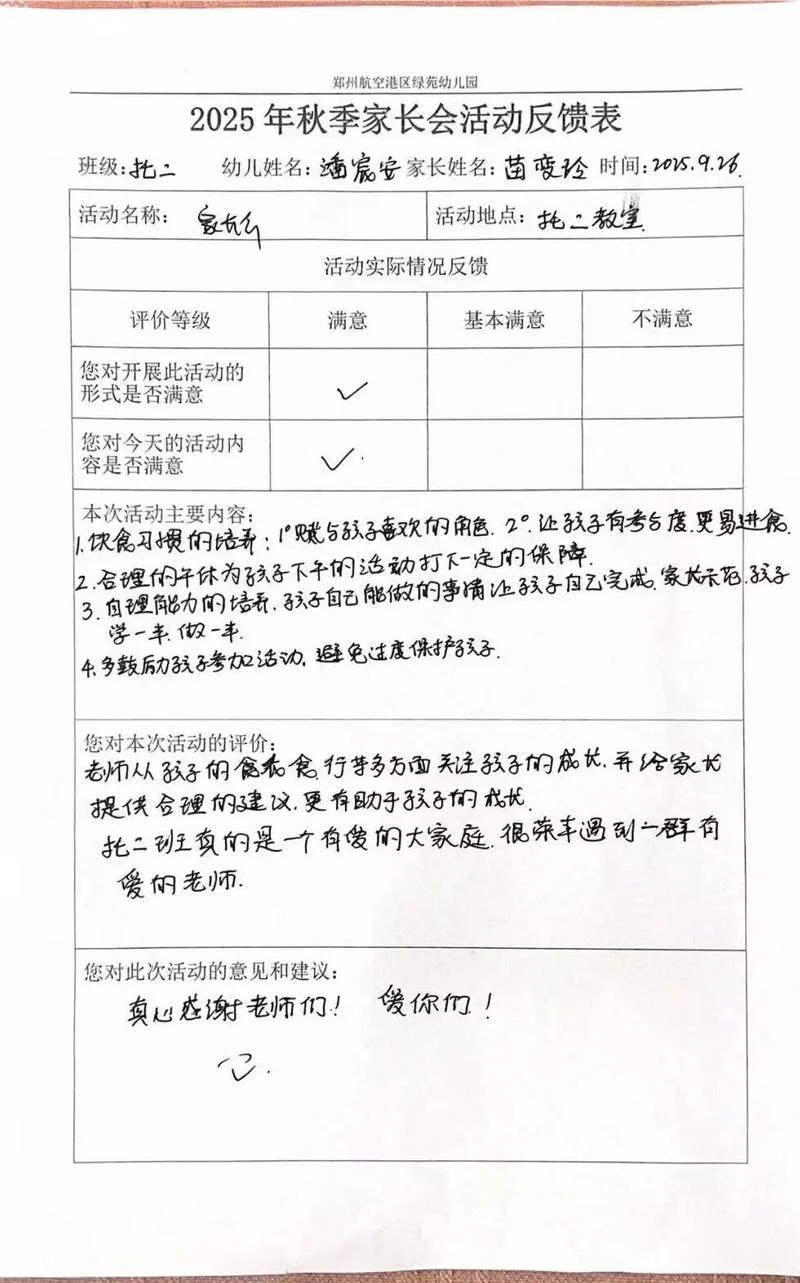 郑州航空港区绿苑幼儿园
2025年秋季家长会活动反馈表
班级:托二 幼儿姓名:潘宸安 家长姓名:苗变玲 时间:2025.9.26.
活动名称: 家长会 活动地点: 托二教室
活动实际情况反馈
评价等级 满意 基本满意 不满意
您对开展此活动的
形式是否满意 ✓
您对今天的活动内
容是否满意 ✓.
本次活动主要内容:
1.饮食习惯的培养: 1°赋与孩子喜欢的角色. 2°让孩子有参与度.更易进食.
2.合理的午休为孩子下午的活动打下一定的保障.
3.自理能力的培养.孩子自己能做的事情让孩子自己完成.家长示范.孩子
学一半.做一半.
4.多鼓励孩子参加活动.避免过度保护孩子.
您对本次活动的评价:
老师从孩子的食.行等多方面关注孩子的成长.并给家长
提供合理的建议.更有助于孩子的成长.
托二班真的是一个有爱的大家庭.很荣幸遇到一群有
爱的老师.
您对此次活动的意见和建议:
真心感谢老师们! 爱你们!